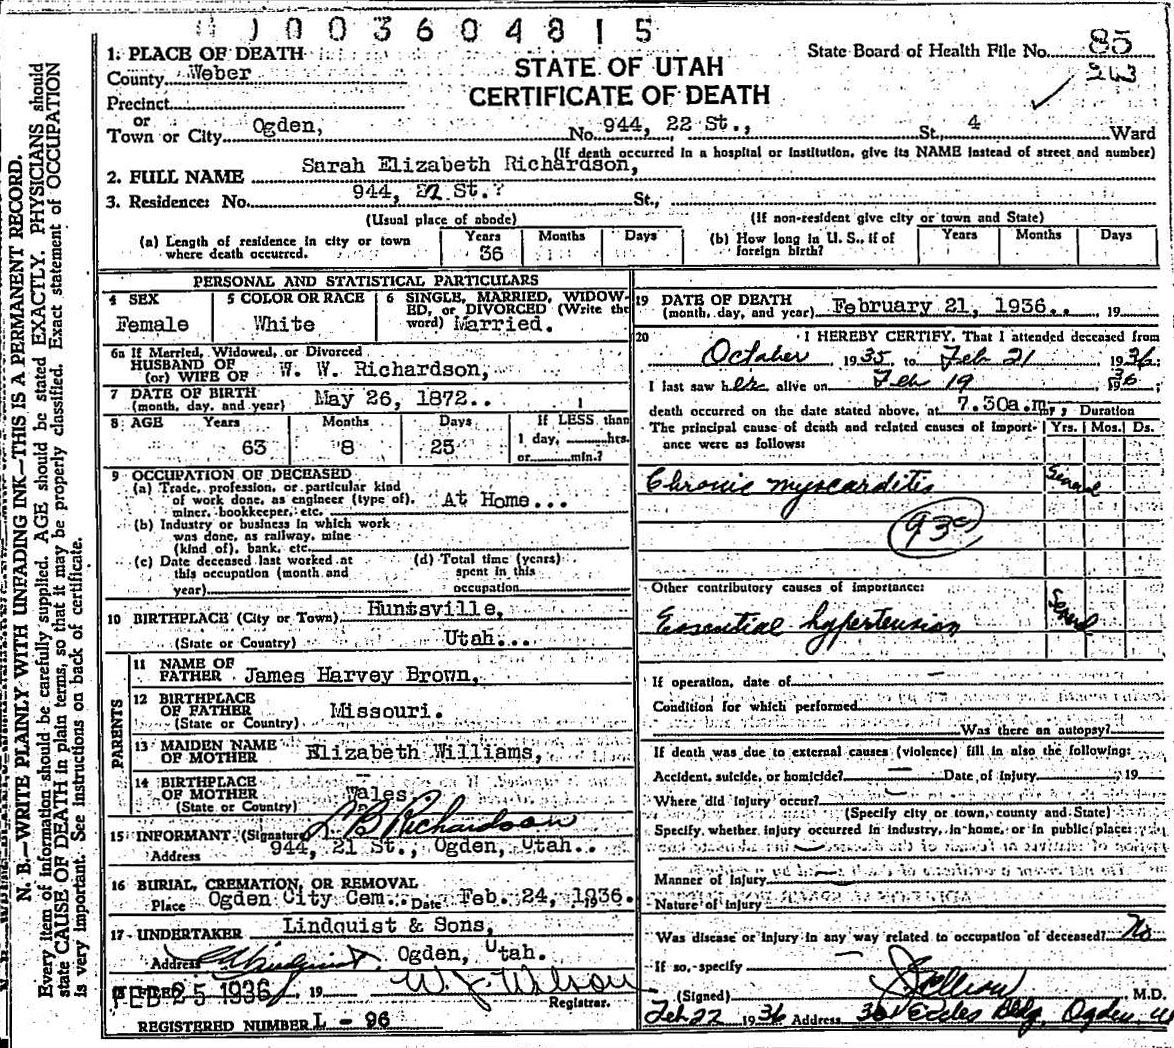 003604815
1. PLACE OF DEATH
State Board of Health File No. 85
243
County Weber
STATE OF UTAH
CERTIFICATE OF DEATH
Precinct
or
Town or City Ogden, No. 944, 22 St., St., 4 Ward
(If death occurred in a hospital or institution, give its NAME instead of street and number)
2. FULL NAME Sarah Elizabeth Richardson,
3. Residence: No. 944, 22 St.? St.,
(Usual place of abode) (If non-resident give city or town and State)
(a) Length of residence in city or town where death occurred. Years 36 Months Days (b) How long in U. S., if of foreign birth? Years Months Days
PERSONAL AND STATISTICAL PARTICULARS
4 SEX Female
5 COLOR OR RACE White
6 SINGLE, MARRIED, WIDOWED, or DIVORCED (Write the word) Married.
6a If Married, Widowed, or Divorced
HUSBAND OF
(or) WIFE OF W. W. Richardson,
7 DATE OF BIRTH
(month, day, and year) May 26, 1872..
8 AGE Years 63 Months 8 Days 25 If LESS than 1 day, hrs. or min.?
9 OCCUPATION OF DECEASED
(a) Trade, profession, or particular kind of work done, as engineer (type of), miner, bookkeeper, etc. At Home...
(b) Industry or business in which work was done, as railway, mine (kind of), bank, etc.
(c) Date deceased last worked at this occupation (month and year)
(d) Total time (years) spent in this occupation
10 BIRTHPLACE (City or Town) Huntsville,
(State or Country) Utah...
PARENTS
11 NAME OF FATHER James Harvey Brown,
12 BIRTHPLACE OF FATHER
(State or Country) Missouri.
13 MAIDEN NAME OF MOTHER Elizabeth Williams,
14 BIRTHPLACE OF MOTHER
(State or Country) Wales
15 INFORMANT (Signature) Richardson
Address 944, 21 St., Ogden, Utah..
16 BURIAL, CREMATION, OR REMOVAL
Place Ogden City Cem. Date Feb. 24, 1936.
17 UNDERTAKER Lindquist & Sons,
Address Ogden, Utah.
FEB 25 1936, 19 W. J. Wilson
Registrar.
REGISTERED NUMBER L - 96
19 DATE OF DEATH
(month, day, and year) February 21, 1936.. 19
20 I HEREBY CERTIFY, That I attended deceased from
October 1935 to Feb 21 1936:
I last saw her alive on Feb 19 1936;
death occurred on the date stated above, at 7.30a.m., Duration
The principal cause of death and related causes of importance were as follows: Yrs. Mos. Ds.
Chronic myocarditis Several
93c
Other contributory causes of importance:
Essential hypertension Several
If operation, date of
Condition for which performed
Was there an autopsy?
If death was due to external causes (violence) fill in also the following:
Accident, suicide, or homicide? Date of injury 19
Where did injury occur?
(Specify city or town, county and State)
Specify whether injury occurred in industry, in home, or in public place:
Manner of Injury
Nature of Injury
Was disease or injury in any way related to occupation of deceased? No
If so, specify
(Signed) M.D.
Feb 22 1936 Address Eccles Bldg, Ogden, U
N. B.—WRITE PLAINLY WITH UNFADING INK—THIS IS A PERMANENT RECORD.
Every item of information should be carefully supplied. AGE should be stated EXACTLY. PHYSICIANS should
state CAUSE OF DEATH in plain terms, so that it may be properly classified. Exact statement of OCCUPATION
is very important. See instructions on back of certificate.